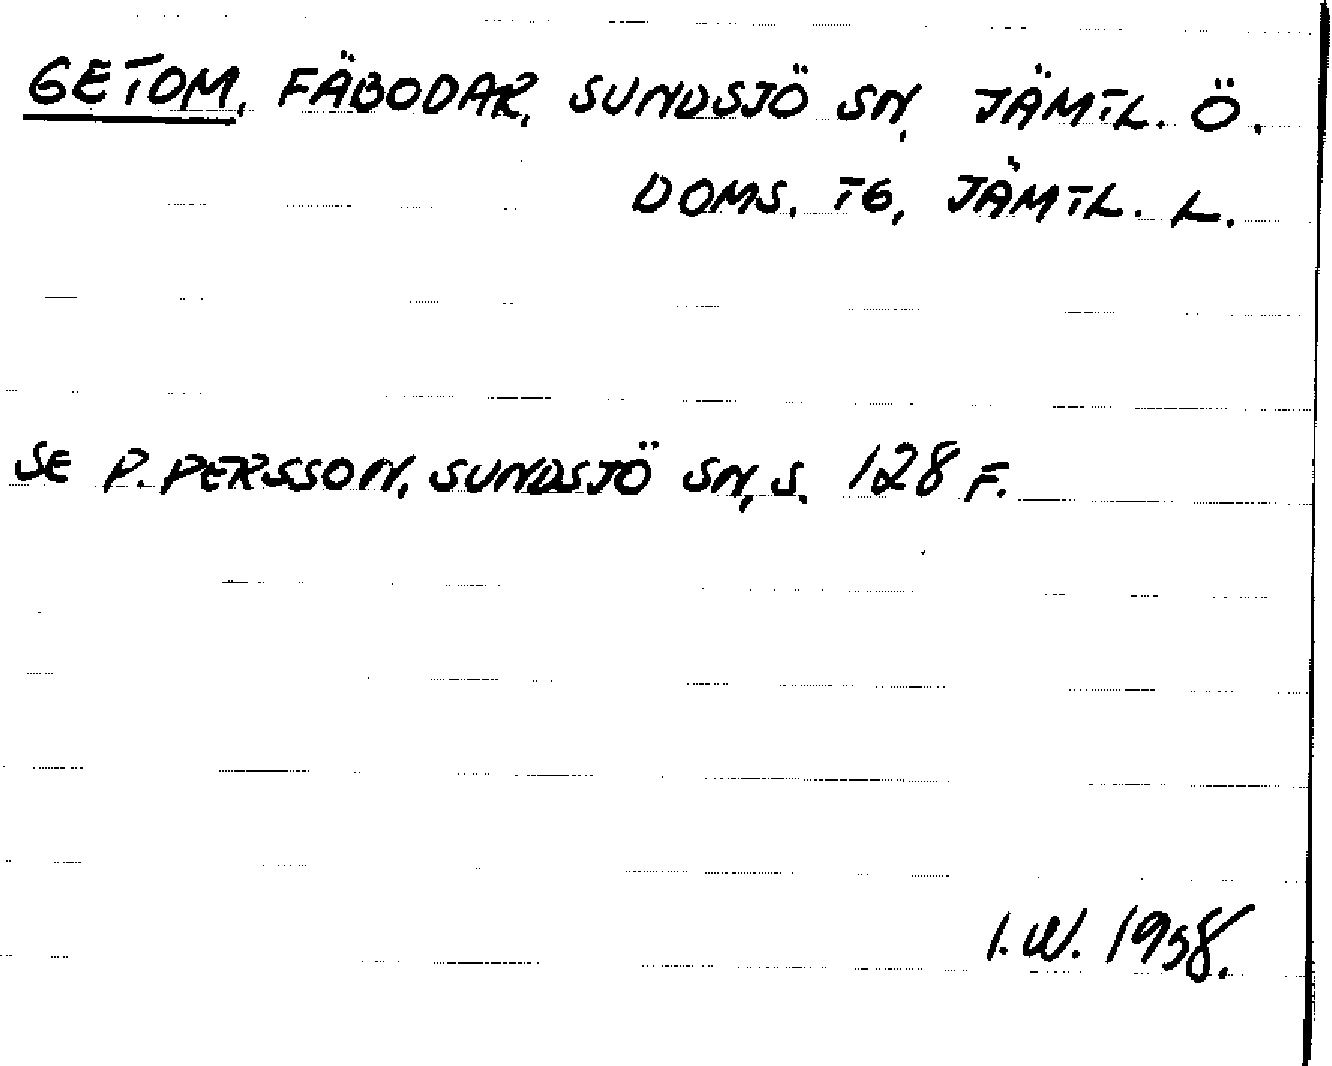 GETOM, FÄBODAR, SUNDSJÖ SN, JÄMTL. Ö.
DOMS. TG, JÄMTL. L.
SE P. PERSSON, SUNDSJÖ SN, S. 128 F.
I. W. 1958.